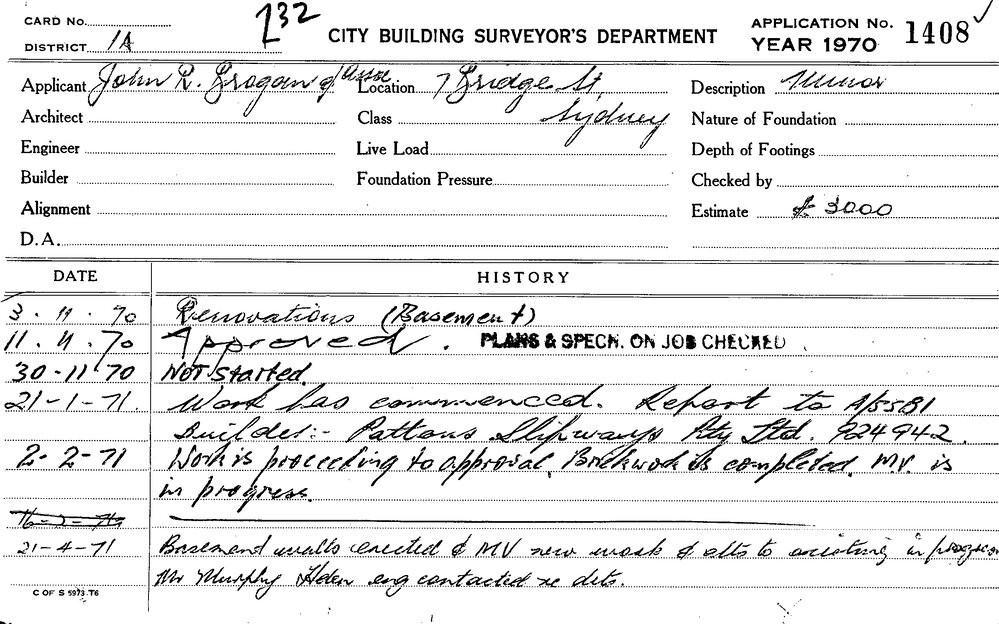 CARD No. 232
DISTRICT 1A
CITY BUILDING SURVEYOR'S DEPARTMENT
APPLICATION No. 1408
YEAR 1970
Applicant John R. Brogan & Assoc Location 7 Bridge St, Description Minor
Architect Class Sydney Nature of Foundation
Engineer Live Load Depth of Footings
Builder Foundation Pressure Checked by
Alignment Estimate $ 3000
D.A.
DATE HISTORY
3 . 11 . 70 Renovations (Basement)
11 . 11 . 70 Approved . PLANS & SPECN. ON JOB CHECKED
30 - 11 - 70 Not Started.
21 - 1 - 71. Work has commenced. Report to A/SSBI
Builder:- Pattons Slipways Pty Ltd. 924942.
2 - 2 - 71 Work is proceeding to approval, Brickwork is completed. MV. is
in progress.
16-3-71
21 - 4 - 71 Basement walls erected & MV new work & alts to existing in progress
Mr Murphy eng contacted re dets.
C OF S 5973.T6